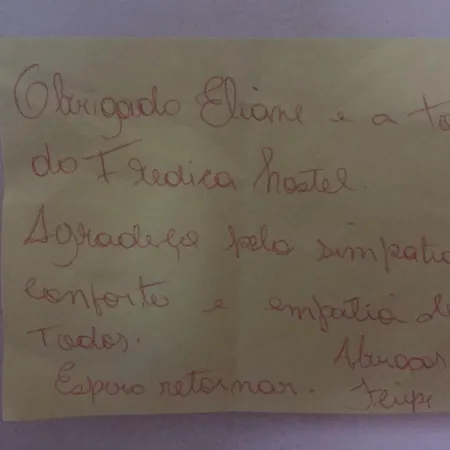 Obrigado Eliane e a to
do Fredica hostel.
Agradeço pela simpatia
conforto e empatia de
Todos.
Abraços
Espero retornar. Felipe